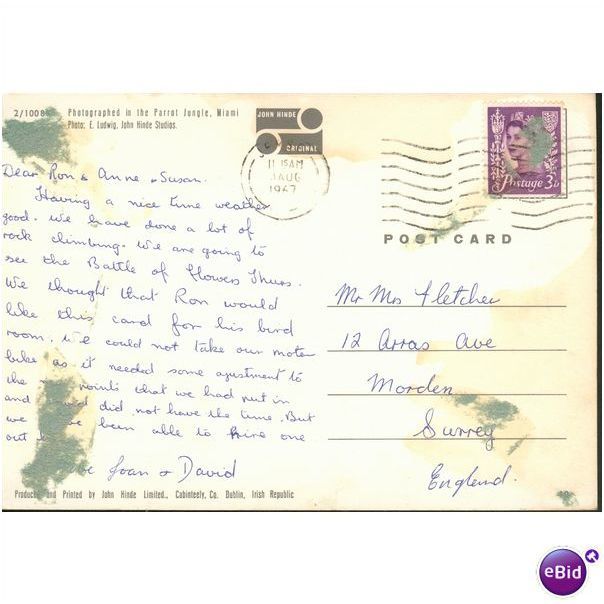 2/1008 Photographed in the Parrot Jungle, Miami
Photo: E. Ludwig, John Hinde Studios.
JOHN HINDE
ORIGINAL
11.15AM
AUG
1967
Postage 3D
POST CARD
Dear Ron & Anne & Susan.
Having a nice time weather
good. We have done a lot of
rock climbing. We are going to
see the Battle of Flowers Thurs.
We thought that Ron would
like this card for his bird
room. We could not take our motor
bike as it needed some ajustment to
the points that we had put in
and did not have the time. But
we been able to hire one
out
Joan & David
Mr Mrs Fletcher
12 Arras Ave
Morden
Surrey
England.
Produced and Printed by John Hinde Limited., Cabinteely, Co. Dublin, Irish Republic
eBid